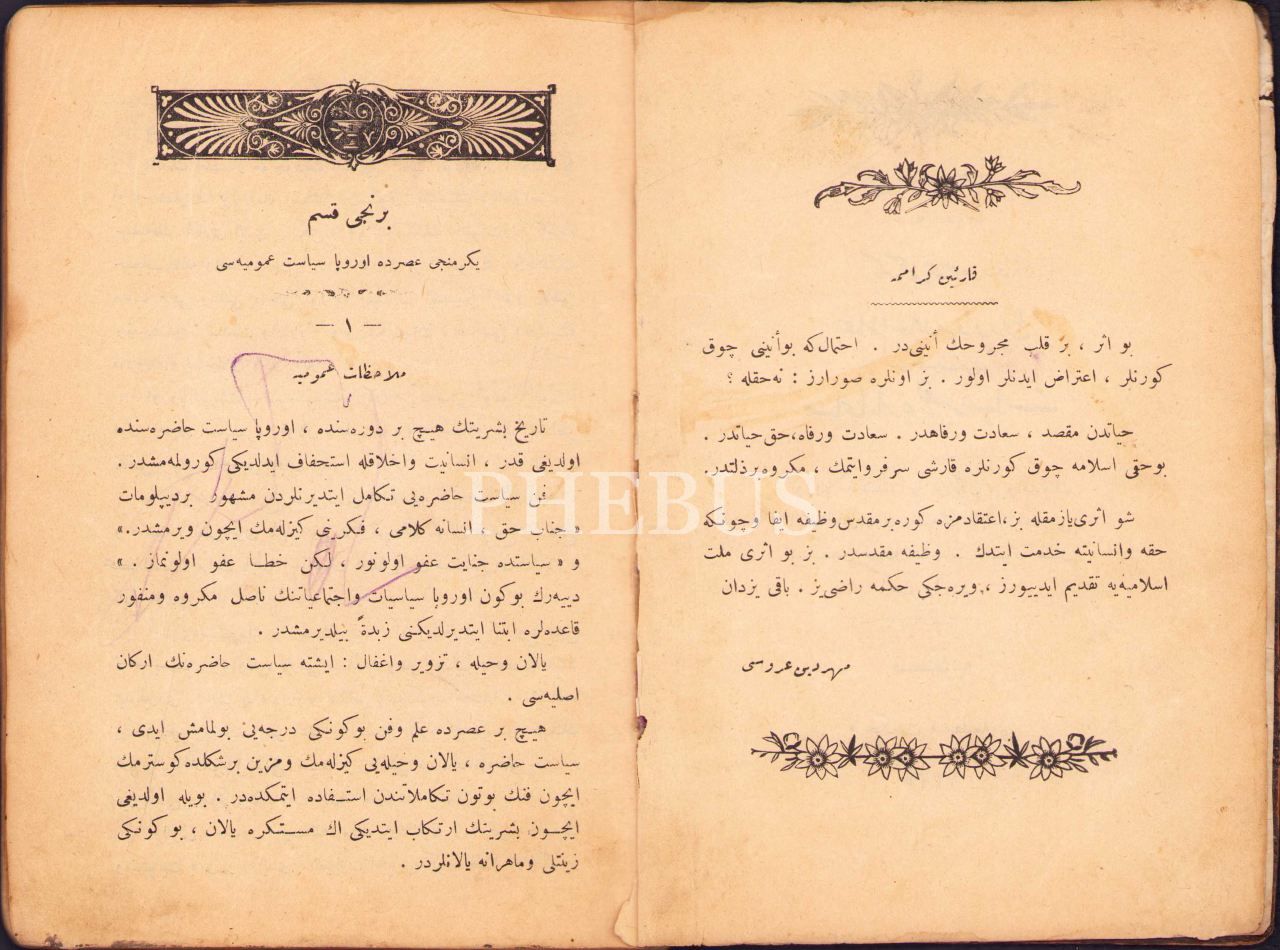 قارئین کرامه
بو اثر ، بر قلب مجروحك أنینی‌در . احتمال‌که بوأنینی چوق
کورنلر ، اعتراض ایدنلر اولور . بز اونلره صورارز : نه‌حقله ؟
حیاتدن مقصد ، سعادت ورفاهدر . سعادت ورفاه،حق‌حیاتدر .
بوحقی اسلامه چوق کورنلره قارشی سرفروایتمك ، مکروه‌برذلتدر.
شو اثری‌یازمقله بز،اعتقادمزه کوره‌برمقدس‌وظیفه ایفا وچونکه
حقه وانسانیته خدمت ایتدك . وظیفه مقدسدر . بز بو اثری ملت
اسلامیه‌یه تقدیم ایدییورز ، ویره‌جکی حکمه راضی‌یز . باقی یزدان
مهردین عروسی
برنجی قسم
یکرمنجی عصرده اوروپا سیاست عمومیه‌سی
— ۱ —
ملاحظات عمومیه
تاریخ بشریتك هیچ بر دوره‌سنده ، اوروپا سیاست حاضره‌سنده
اولدیغی قدر ، انسانیت واخلاقله استخفاف ایدلدیکی کورولمه‌مشدر .
فن سیاست حاضره‌یی تکامل ایتدیرنلردن مشهور بردیپلومات
« جناب حق ، انسانه کلامی ، فکرنی کیزله‌مك ایچون ویرمشدر.»
و « سیاستده جنایت عفو اولونور ، لکن خطا عفو اولونماز . »
دییه‌رك بوکون اوروپا سیاسیات واجتماعیاتنك ناصل مکروه ومنفور
قاعده‌لره ابتنا ایتدیرلدیکنی زبدةً بیلدیرمشدر .
یالان وحیله ، تزویر واغفال : ایشته سیاست حاضره‌نك ارکان
اصلیه‌سی .
هیچ بر عصرده علم وفن بوکونکی درجه‌یی بولمامش ایدی ،
سیاست حاضره ، یالان وحیله‌یی کیزله‌مك ومزین برشکلده‌کوسترمك
ایچون فنك بوتون تکاملاتندن استفاده ایتمکده‌در . بویله اولدیغی
ایچون بشریتك ارتکاب ایتدیکی اك مستکره یالان ، بوکونکی
زینتلی وماهرانه یالانلردر .
PHEBUS